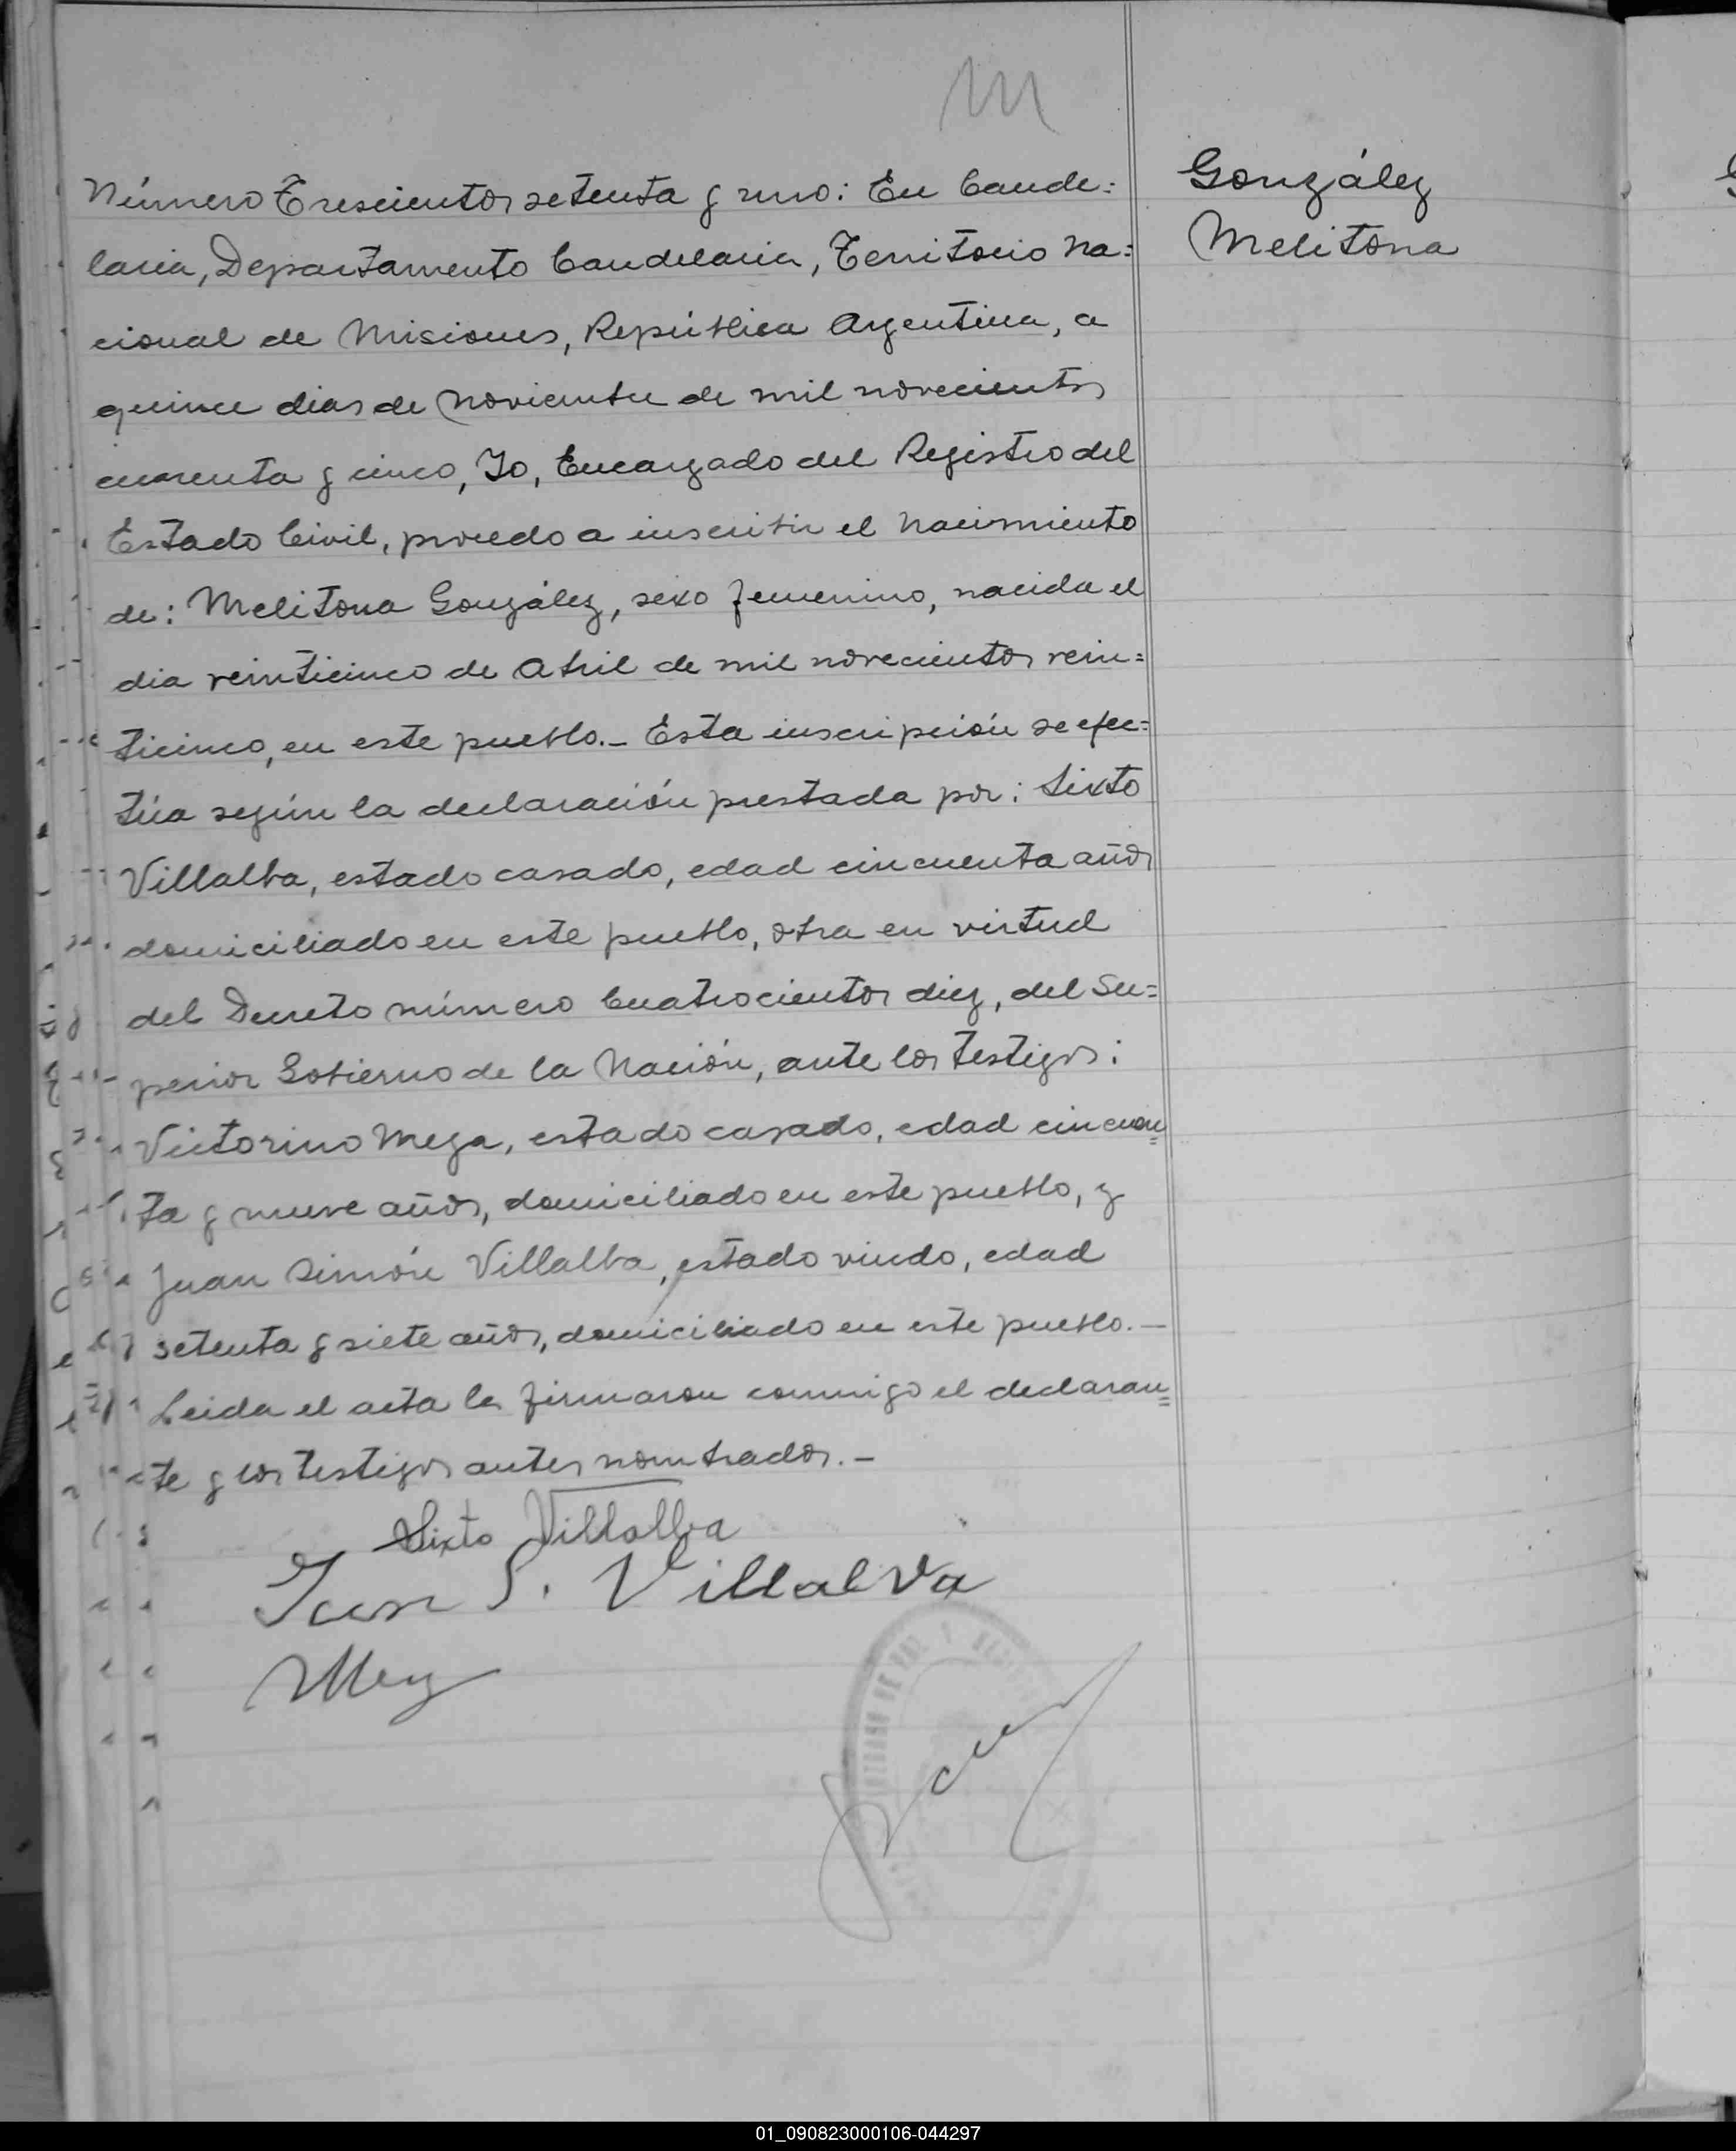 m
Número Trescientos setenta y uno: En Cande=
laria, Departamento Candelaria, Territorio Na=
cional de Misiones, República Argentina, a
quince dias de Noviembre de mil novecientos
cuarenta y cinco, Yo, Encargado del Registro del
Estado Civil, procedo a inscribir el Nacimiento
de: Melitona González, sexo femenino, nacida el
dia veinticinco de Abril de mil novecientos vein=
ticinco, en este pueblo.- Esta inscripción se efec=
túa según la declaración prestada por: Sixto
Villalba, estado casado, edad cincuenta años
domiciliado en este pueblo, obra en virtud
del Decreto número Cuatrocientos diez, del Su=
perior Gobierno de la Nación, ante los testigos:
Victorino Meza, estado casado, edad cincuen=
ta y nueve años, domiciliado en este pueblo, y
Juan Simón Villalba, estado viudo, edad
setenta y siete años, domiciliado en este pueblo.-
Leida el acta la firmaron conmigo el declaran=
te y los testigos antes nombrados.-
Sixto Villalba
Juan S. Villalva
González
Melitona
01_090823000106-044297